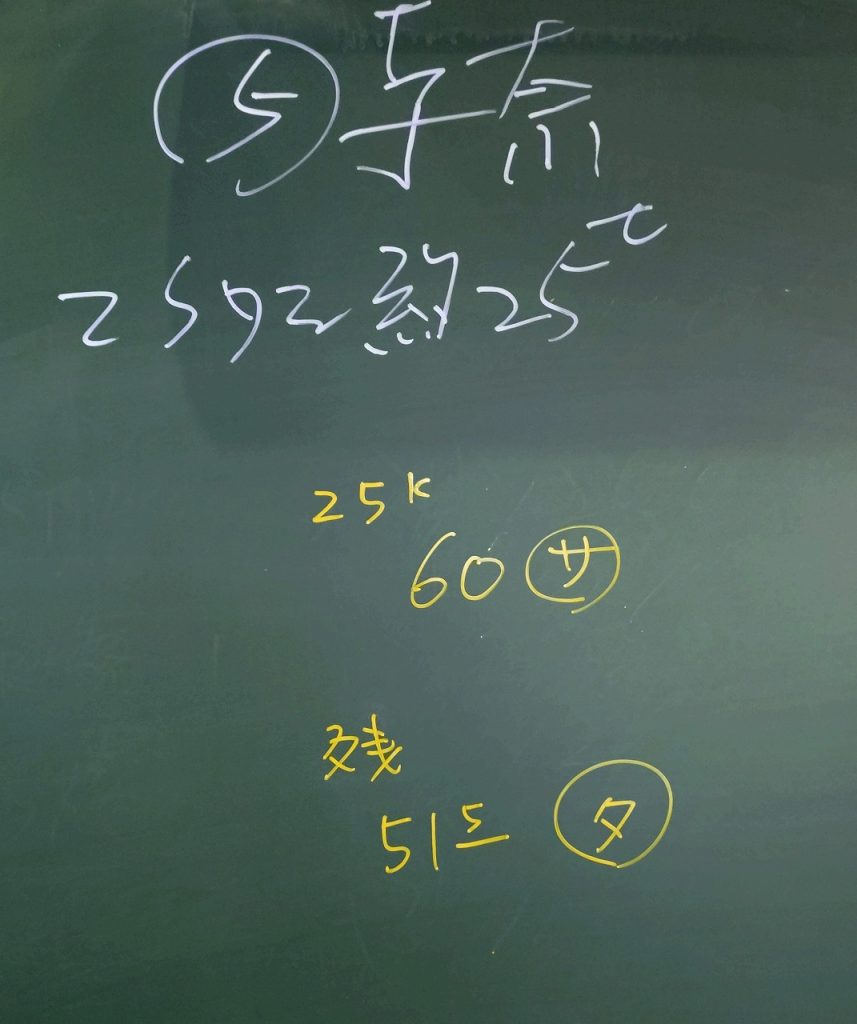 2592 約25t
25K
60 サ
残
515 タ